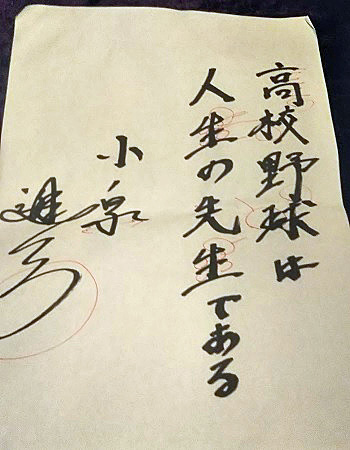 高校野球は
人生の先生である
小泉
進次郎